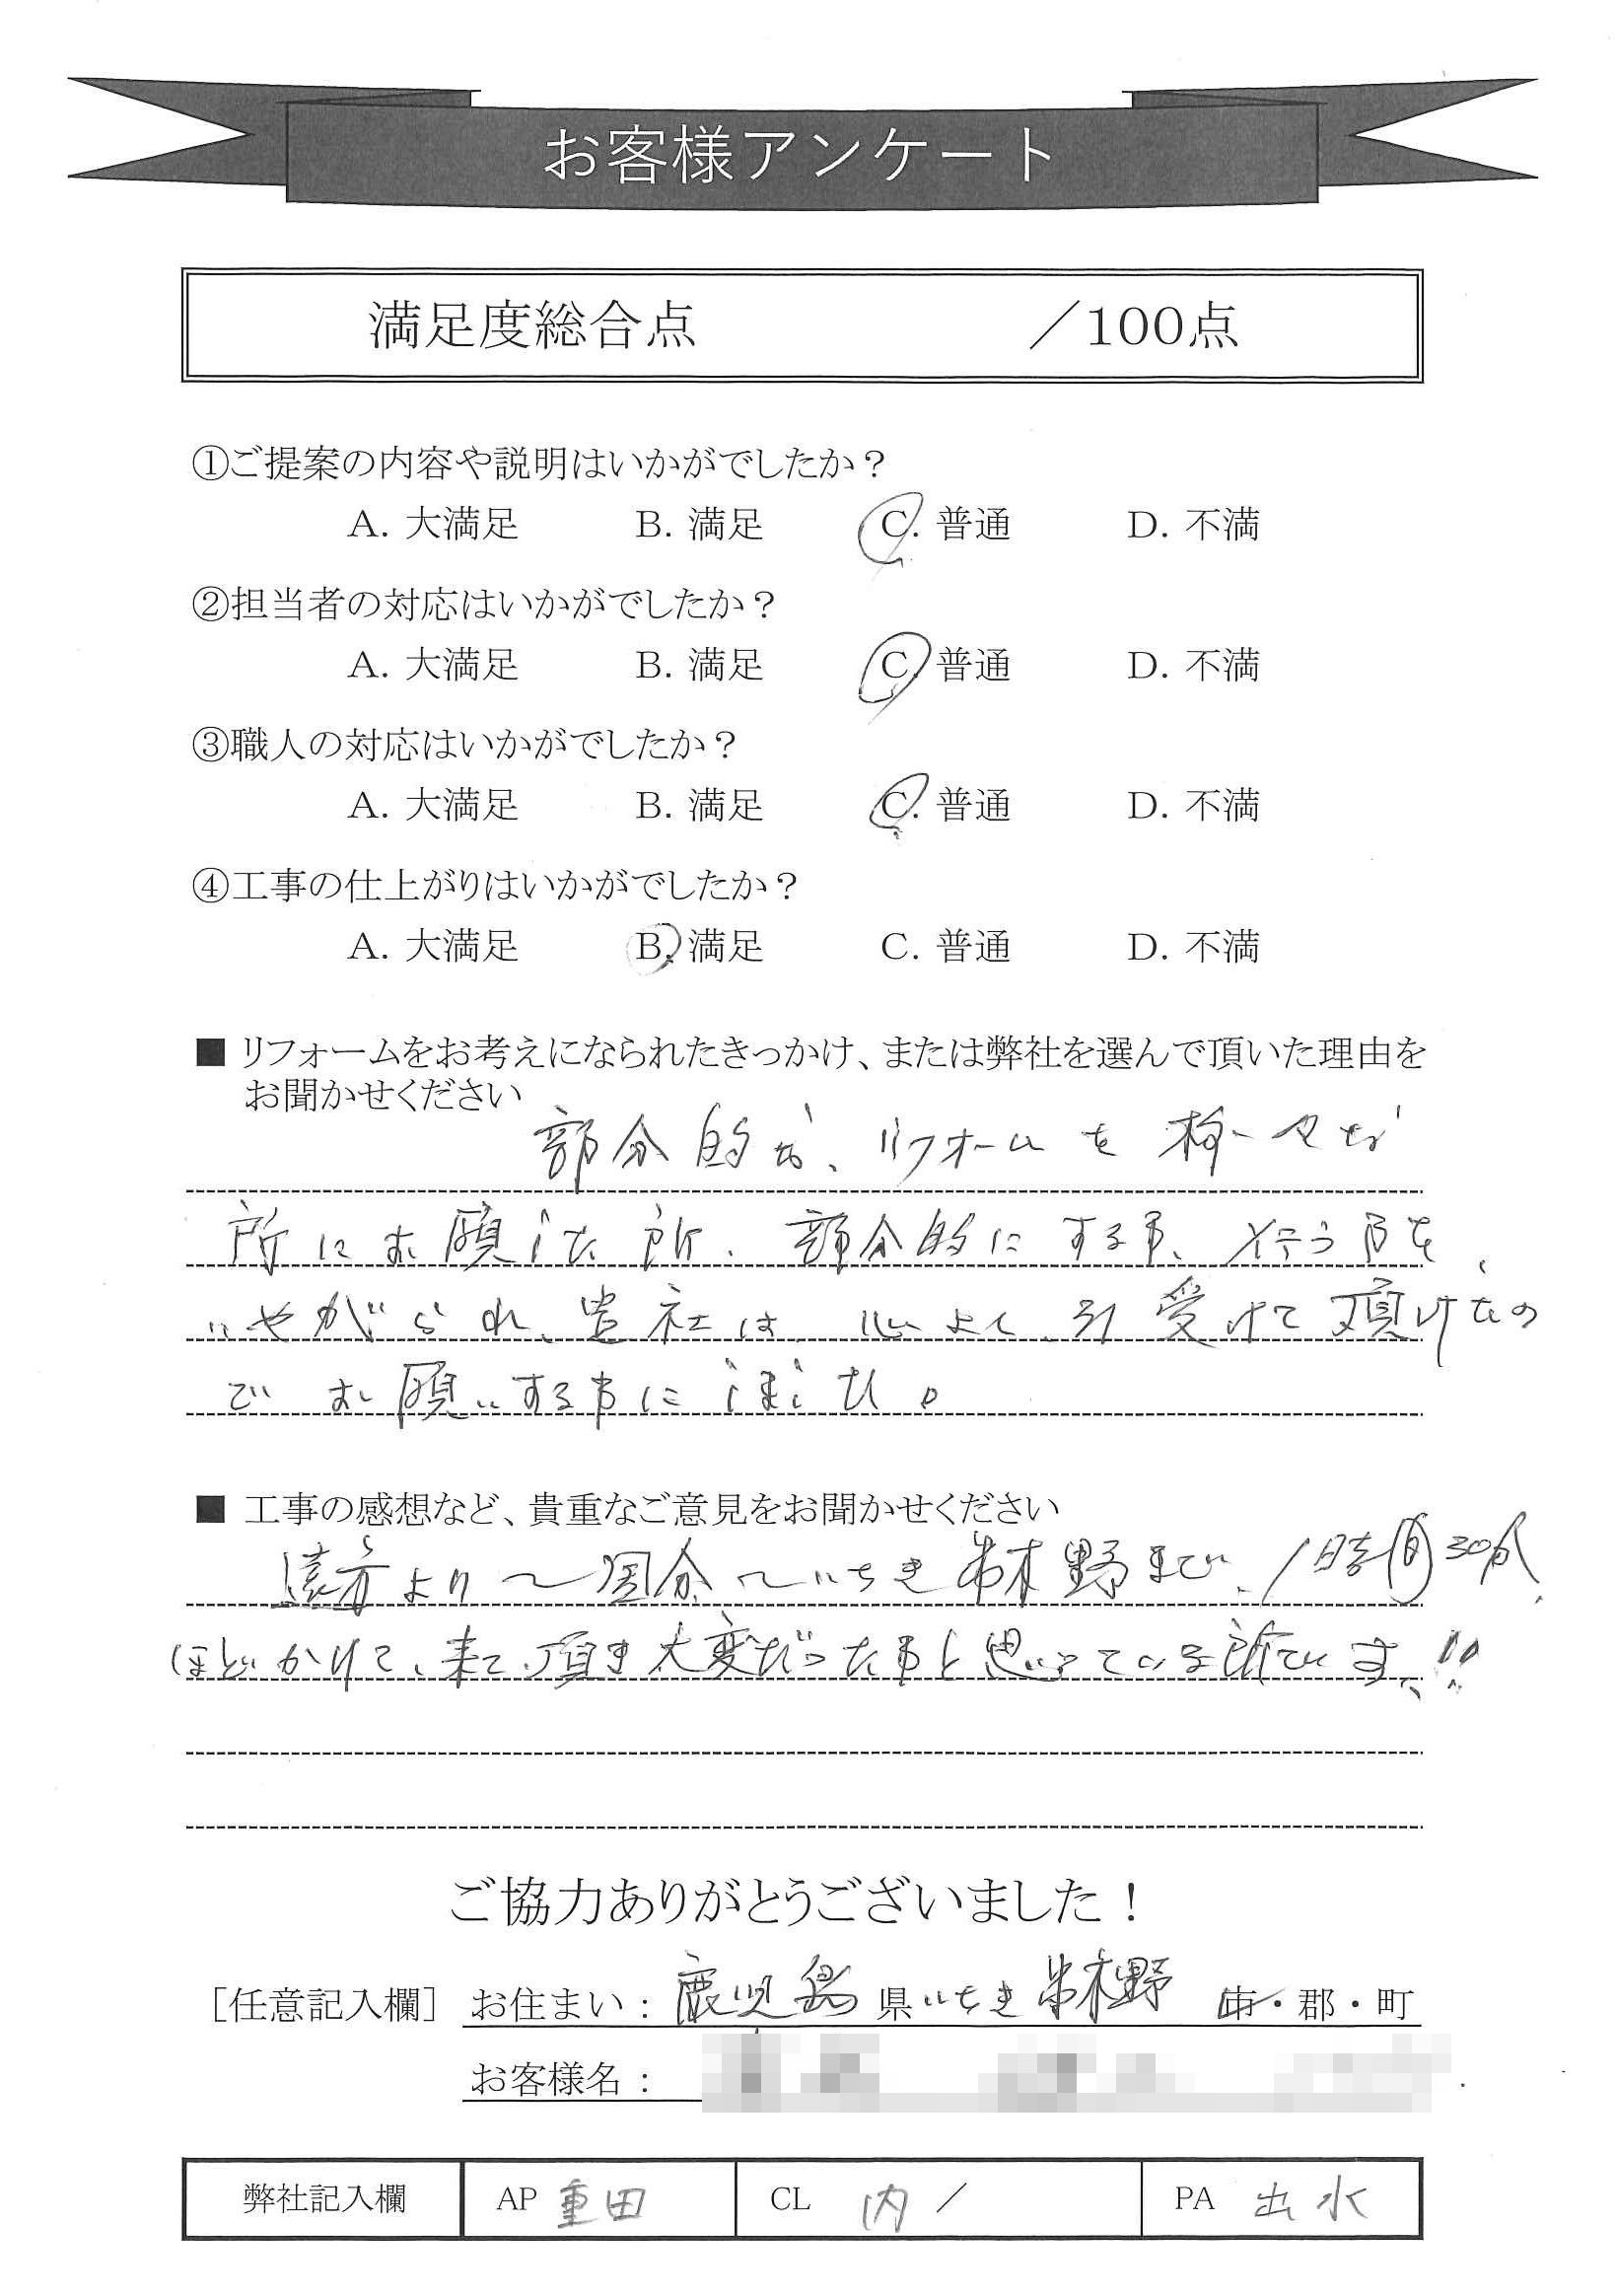 お客様アンケート
満足度総合点 ／100点
①ご提案の内容や説明はいかがでしたか？
A. 大満足 B. 満足 C. 普通 D. 不満
②担当者の対応はいかがでしたか？
A. 大満足 B. 満足 C. 普通 D. 不満
③職人の対応はいかがでしたか？
A. 大満足 B. 満足 C. 普通 D. 不満
④工事の仕上がりはいかがでしたか？
A. 大満足 B. 満足 C. 普通 D. 不満
■ リフォームをお考えになられたきっかけ、または弊社を選んで頂いた理由を
お聞かせください
部分的な、リフォームを 様々な
所にお願いした所、部分的にする事、行う事を、
いやがられ、貴社は、心よく、引受けて頂けたの
で お願いする事に しました。
■ 工事の感想など、貴重なご意見をお聞かせください
遠方より〜国分〜いちき串木野まで、1時間30分、
ほどかけて、来て、頂き大変だった事と思っている所です、!!
ご協力ありがとうございました！
［任意記入欄］ お住まい： 鹿児島 県 いちき串木野 市・郡・町
お客様名：
弊社記入欄 AP 重田 CL 内 ／ PA 出水